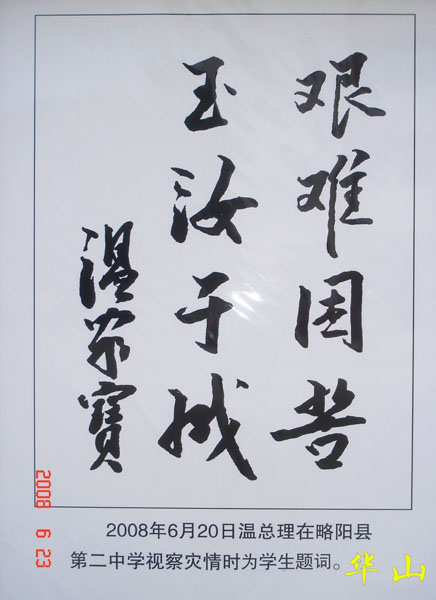 艰难困苦
玉汝于成
温家寶
2008年6月20日温总理在略阳县
第二中学视察灾情时为学生题词。
2008 6 23
华山